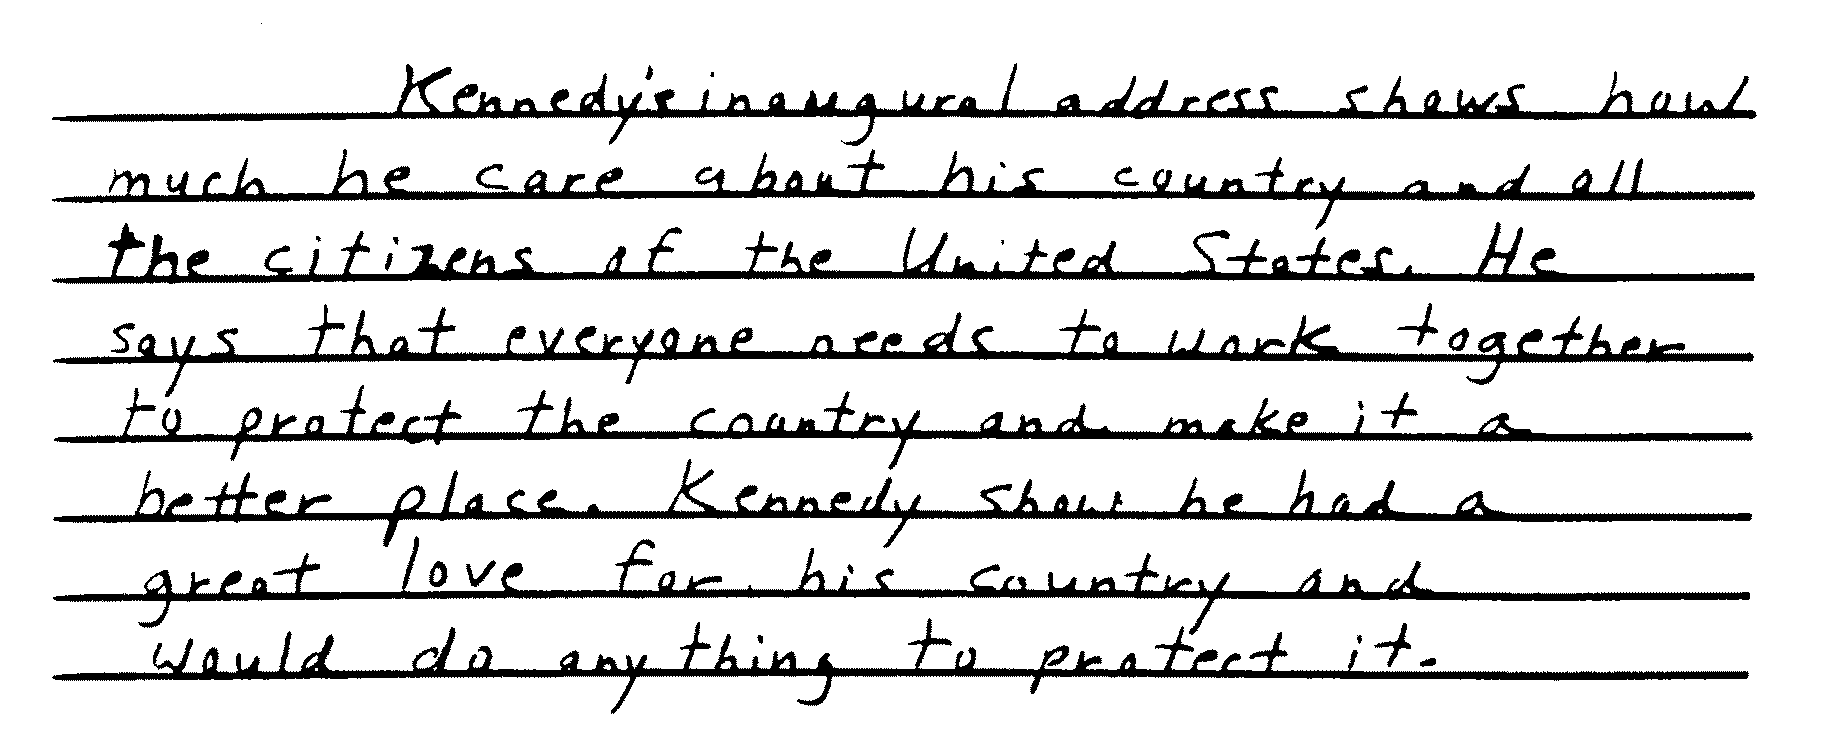 Kennedy's inaugural address shows how
much he care about his country and all
the citizens of the United States. He
says that everyone needs to work together
to protect the country and make it a
better place. Kennedy show he had a
great love for his country and
would do anything to protect it.